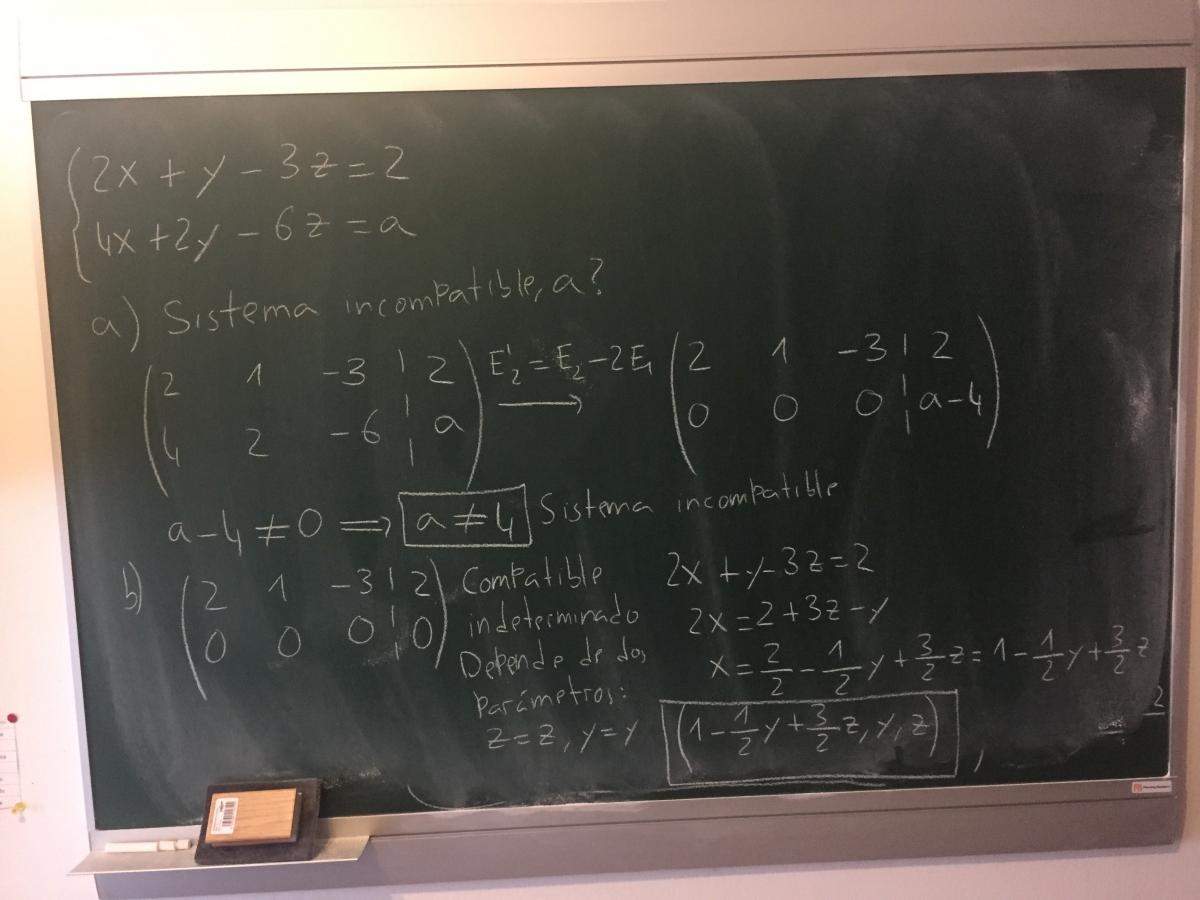 2x + y - 3z = 2
4x + 2y - 6z = a
a) Sistema incompatible, a?
( 2 1 -3 | 2 ) E'₂ = E₂ - 2E₁ ( 2 1 -3 | 2 )
( 4 2 -6 | a ) ⟶ ( 0 0 0 | a-4 )
a-4 ≠ 0 ⟹ a ≠ 4 Sistema incompatible
b) ( 2 1 -3 | 2 )
( 0 0 0 | 0 )
Compatible
indeterminado
Depende de dos
parámetros:
z = z, y = y
2x + y - 3z = 2
2x = 2 + 3z - y
x = 2/2 - 1/2 y + 3/2 z = 1 - 1/2 y + 3/2 z
(1 - 1/2 y + 3/2 z, y, z)